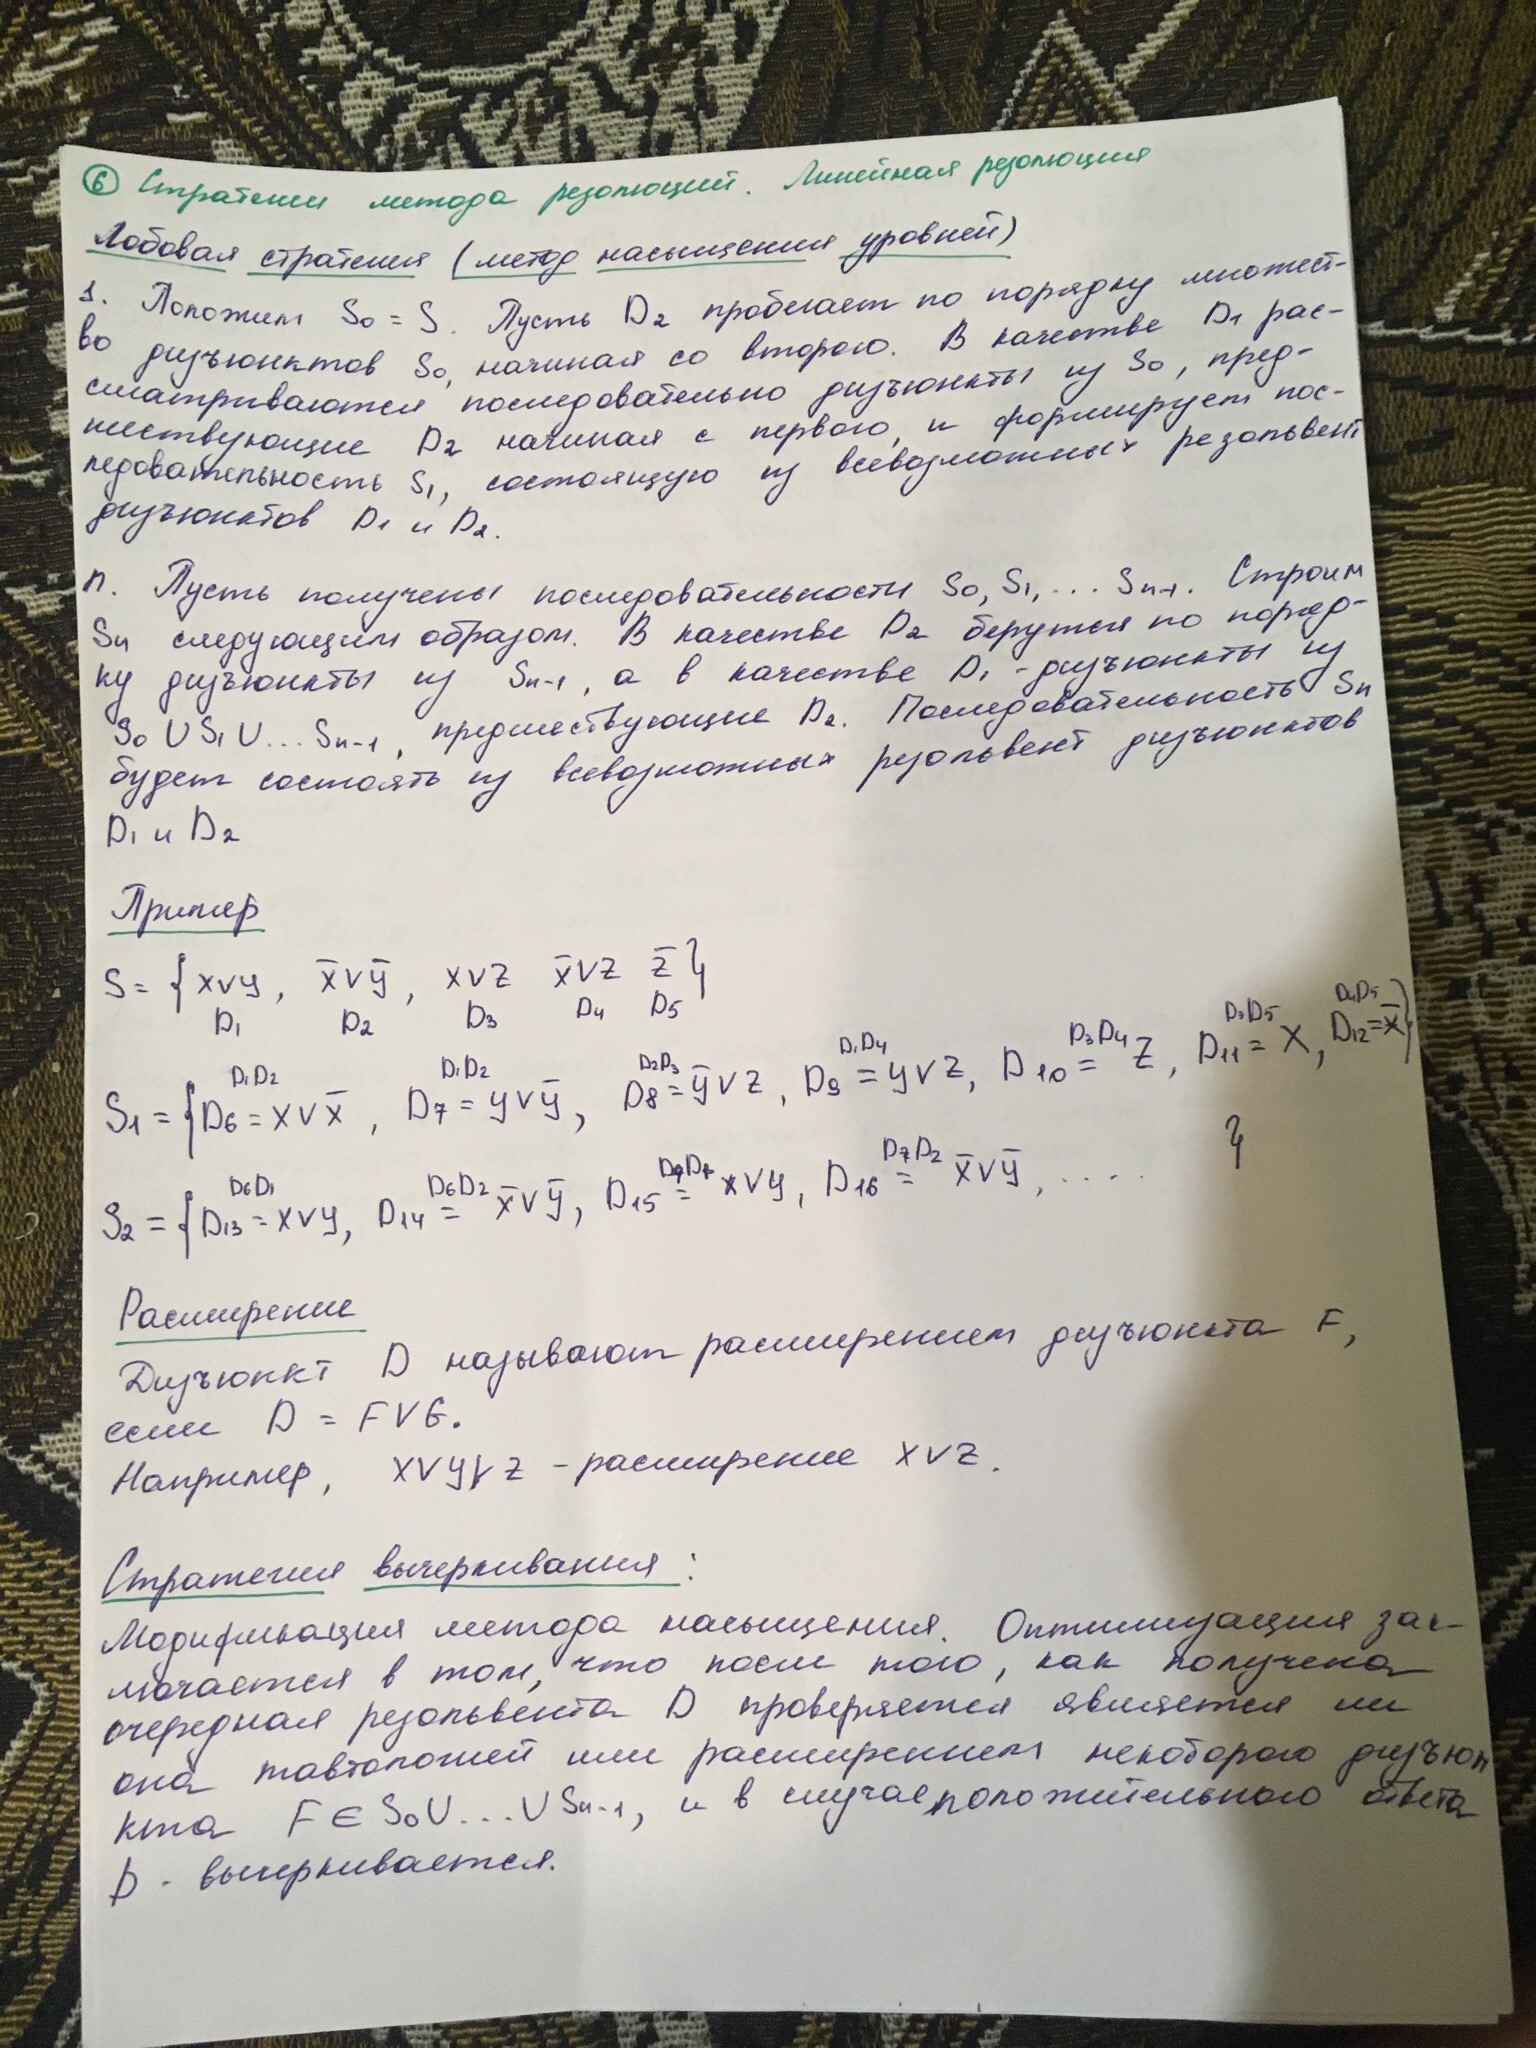 6 Стратегии метода резолюций. Линейная резолюция
Лобовая стратегия (метод насыщения уровней)
1. Положим S₀ = S. Пусть D₂ пробегает по порядку множест-
во дизъюнктов S₀, начиная со второго. В качестве D₁ рас-
сматриваются последовательно дизъюнкты из S₀, пред-
шествующие D₂ начиная с первого, и формирует пос-
ледовательность S₁, состоящую из всевозможных резольвент
дизъюнктов D₁ и D₂.
n. Пусть получены последовательности S₀, S₁, ... Sₙ₋₁. Строим
Sₙ следующим образом. В качестве D₂ берутся по поряд-
ку дизъюнкты из Sₙ₋₁, а в качестве D₁ - дизъюнкты из
S₀ ∪ S₁ ∪ ... Sₙ₋₁, предшествующие D₂. Последовательность Sₙ
будет состоять из всевозможных резольвент дизъюнктов
D₁ и D₂
Пример
S = { x∨y, x̅∨y̅, x∨z x̅∨z z̅ }
D₁ D₂ D₃ D₄ D₅
D₁D₂ D₁D₂ D₂D₃ D₁D₄ D₃D₄ D₃D₅ D₄D₅
S₁ = { D₆ = x∨x̅, D₇ = y∨y̅, D₈ = y̅∨z, D₉ = y∨z, D₁₀ = z, D₁₁ = x, D₁₂ = x̅ }
D₆D₁ D₆D₂ D₇D₂
S₂ = { D₁₃ = x∨y, D₁₄ = x̅∨y̅, D₁₅ = x∨y, D₁₆ = x̅∨y̅, ..... }
Расширение
Дизъюнкт D называют расширением дизъюнкта F,
если D = F∨G.
Например, x∨y∨z - расширение x∨z.
Стратегия вычеркивания:
Модификация метода насыщения. Оптимизация зак-
лючается в том, что после того, как получена
очередная резольвента D проверяется является ли
она тавтологией или расширением некоторого дизъюн
кта F ∈ S₀ ∪ ... ∪ Sₙ₋₁, и в случае положительного ответа
D - вычеркивается.